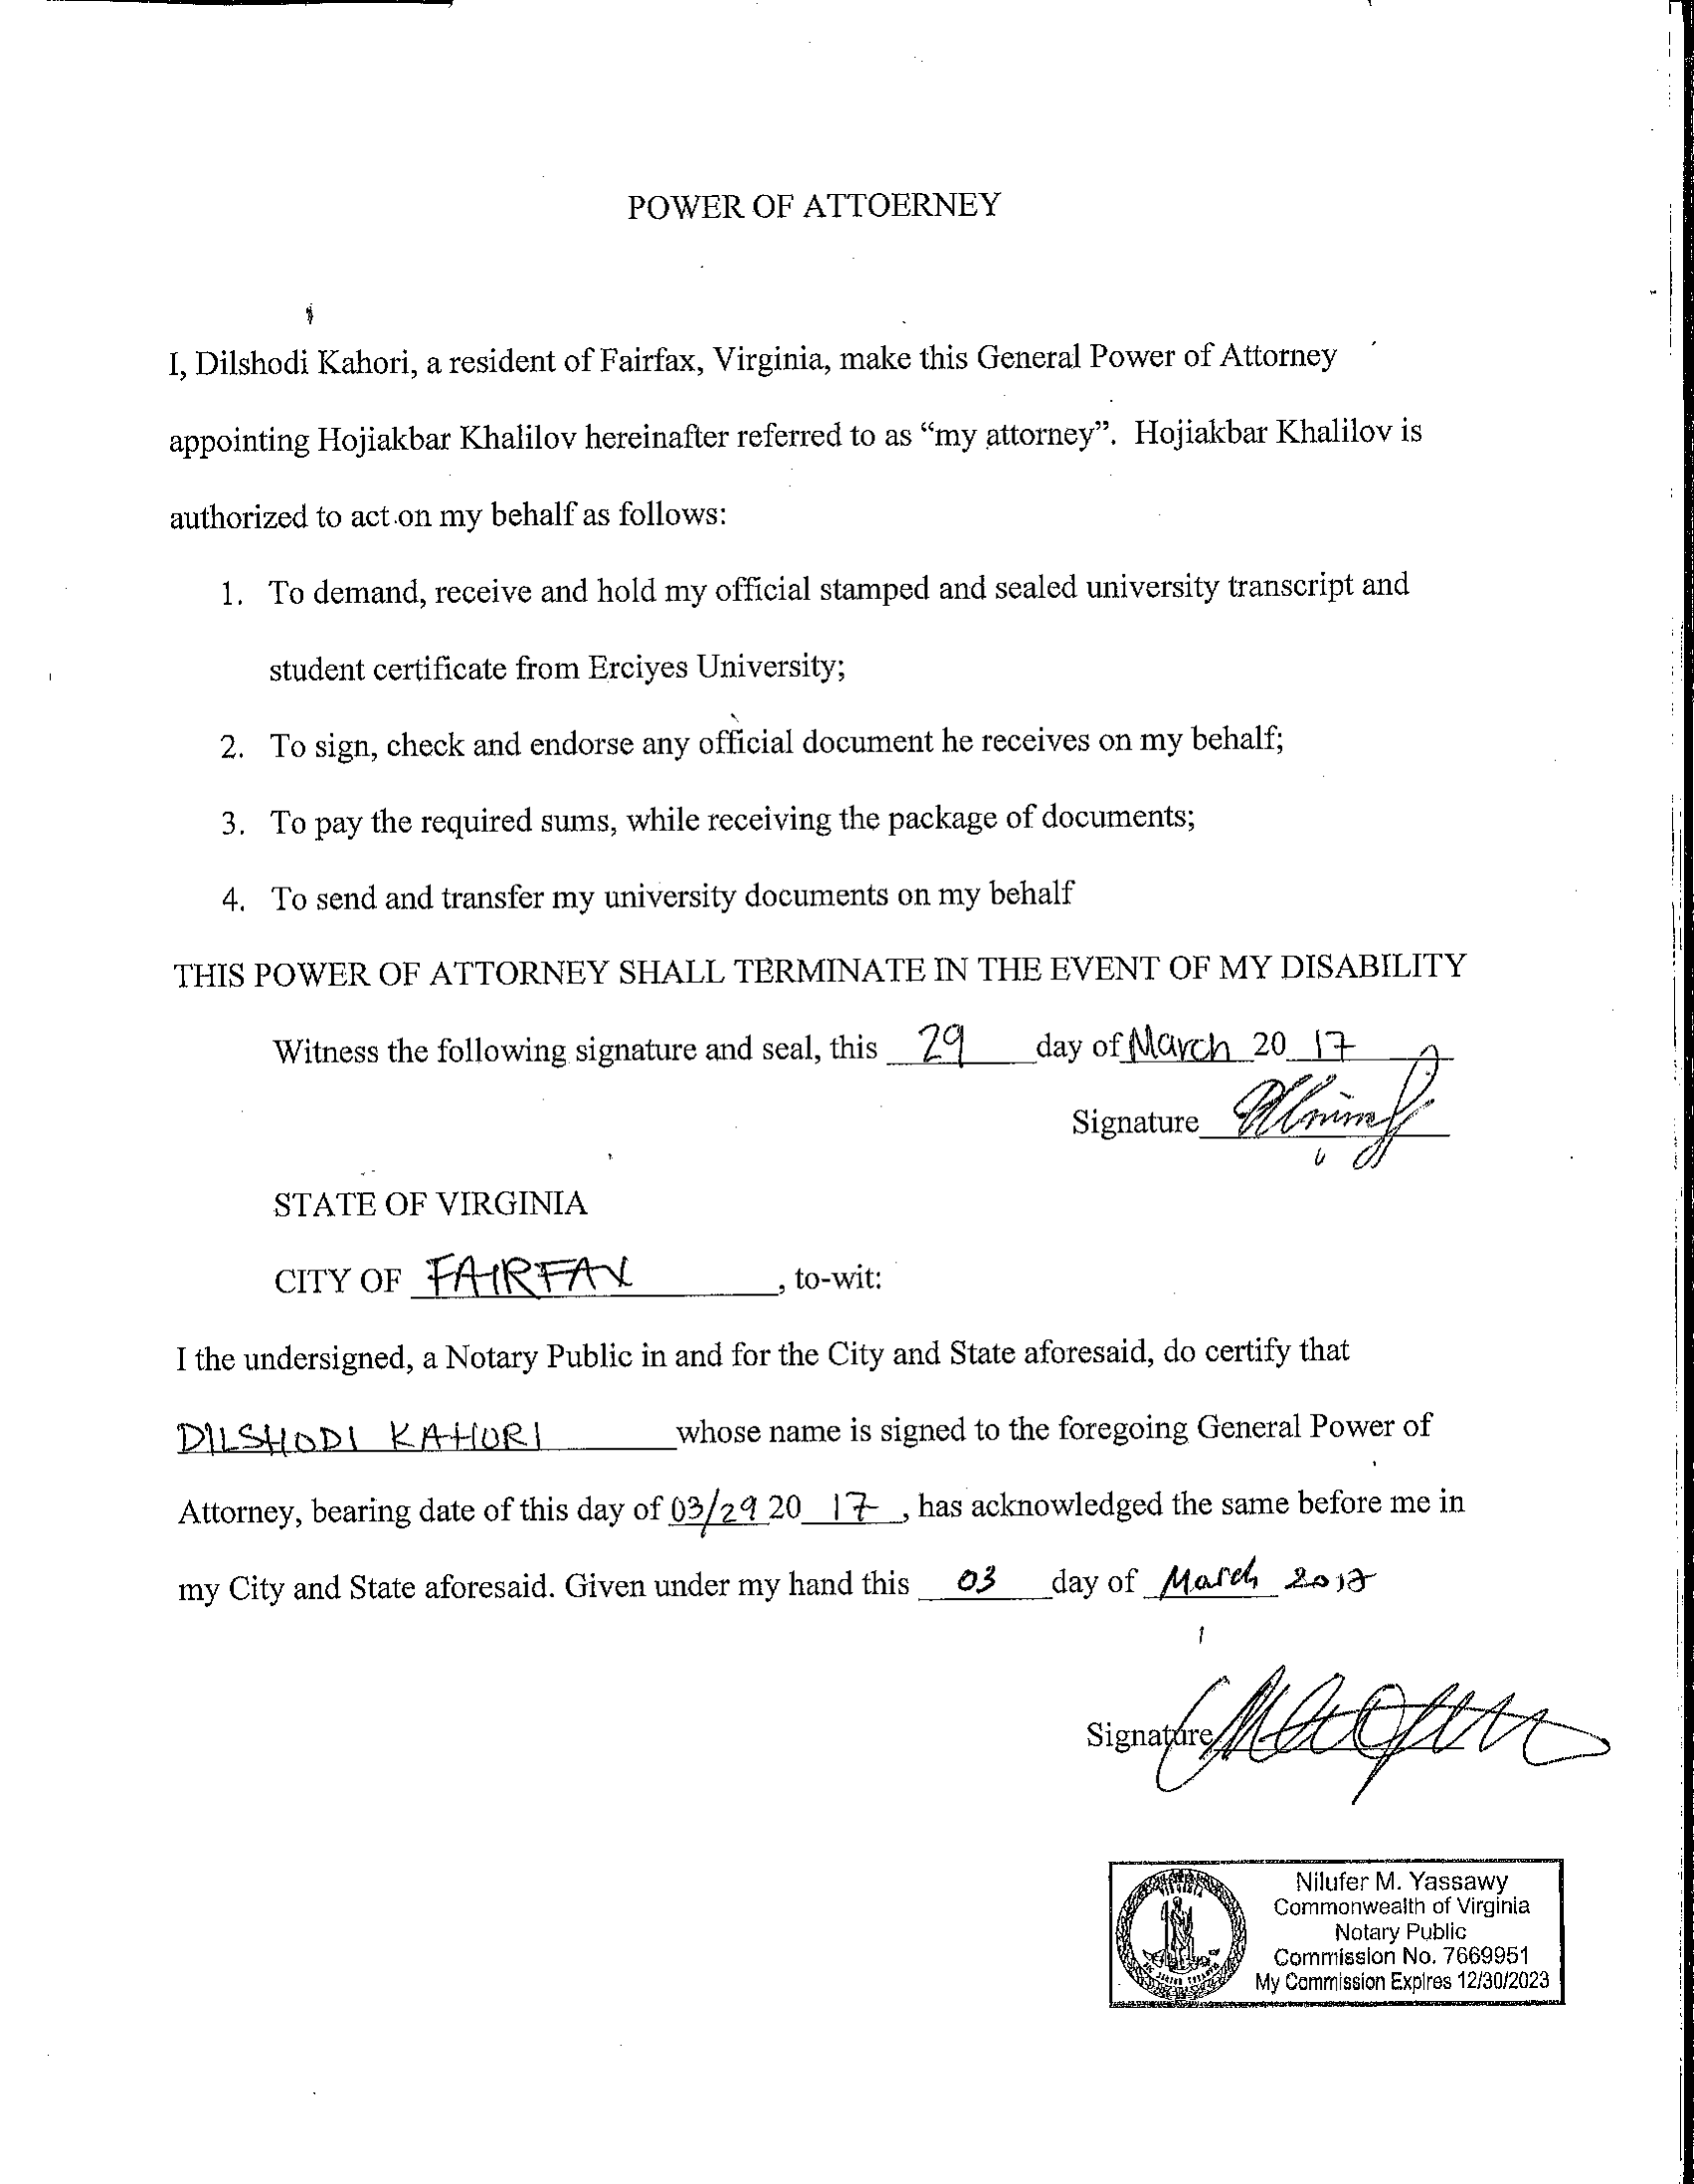 POWER OF ATTOERNEY
I, Dilshodi Kahori, a resident of Fairfax, Virginia, make this General Power of Attorney
appointing Hojiakbar Khalilov hereinafter referred to as “my attorney”. Hojiakbar Khalilov is
authorized to act on my behalf as follows:
1. To demand, receive and hold my official stamped and sealed university transcript and
student certificate from Erciyes University;
2. To sign, check and endorse any official document he receives on my behalf;
3. To pay the required sums, while receiving the package of documents;
4. To send and transfer my university documents on my behalf
THIS POWER OF ATTORNEY SHALL TERMINATE IN THE EVENT OF MY DISABILITY
Witness the following signature and seal, this 29 day of March 20 17
Signature
STATE OF VIRGINIA
CITY OF FAIRFAX, to-wit:
I the undersigned, a Notary Public in and for the City and State aforesaid, do certify that
DILSHODI KAHORI whose name is signed to the foregoing General Power of
Attorney, bearing date of this day of 03/29 20 17, has acknowledged the same before me in
my City and State aforesaid. Given under my hand this 03 day of March 2017
Signature
Nilufer M. Yassawy
Commonwealth of Virginia
Notary Public
Commission No. 7669951
My Commission Expires 12/30/2023